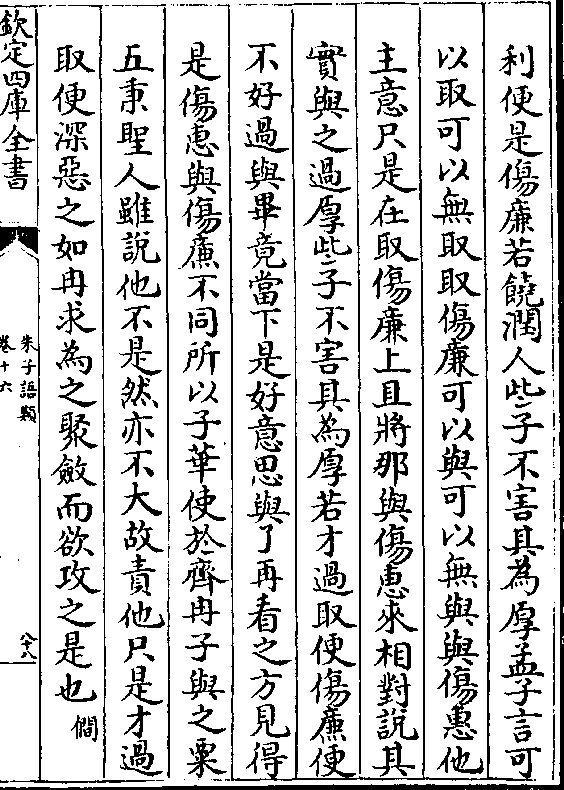 利便是傷廉若饒潤人些子不害其為厚孟子言可
以取可以無取取傷廉可以與可以無與與傷惠他
主意只是在取傷廉上且將那與傷惠來相對說其
實與之過厚些子不害其為厚若才過取便傷廉便
不好過與畢竟當下是好意思與了再看之方見得
是傷惠與傷廉不同所以子華使於齊冉子與之粟
五秉聖人雖說他不是然亦不大故責他只是才過
取便深惡之如冉求為之聚斂而欲攻之是也 僩
欽定四庫全書
朱子語類
卷十六
八十八